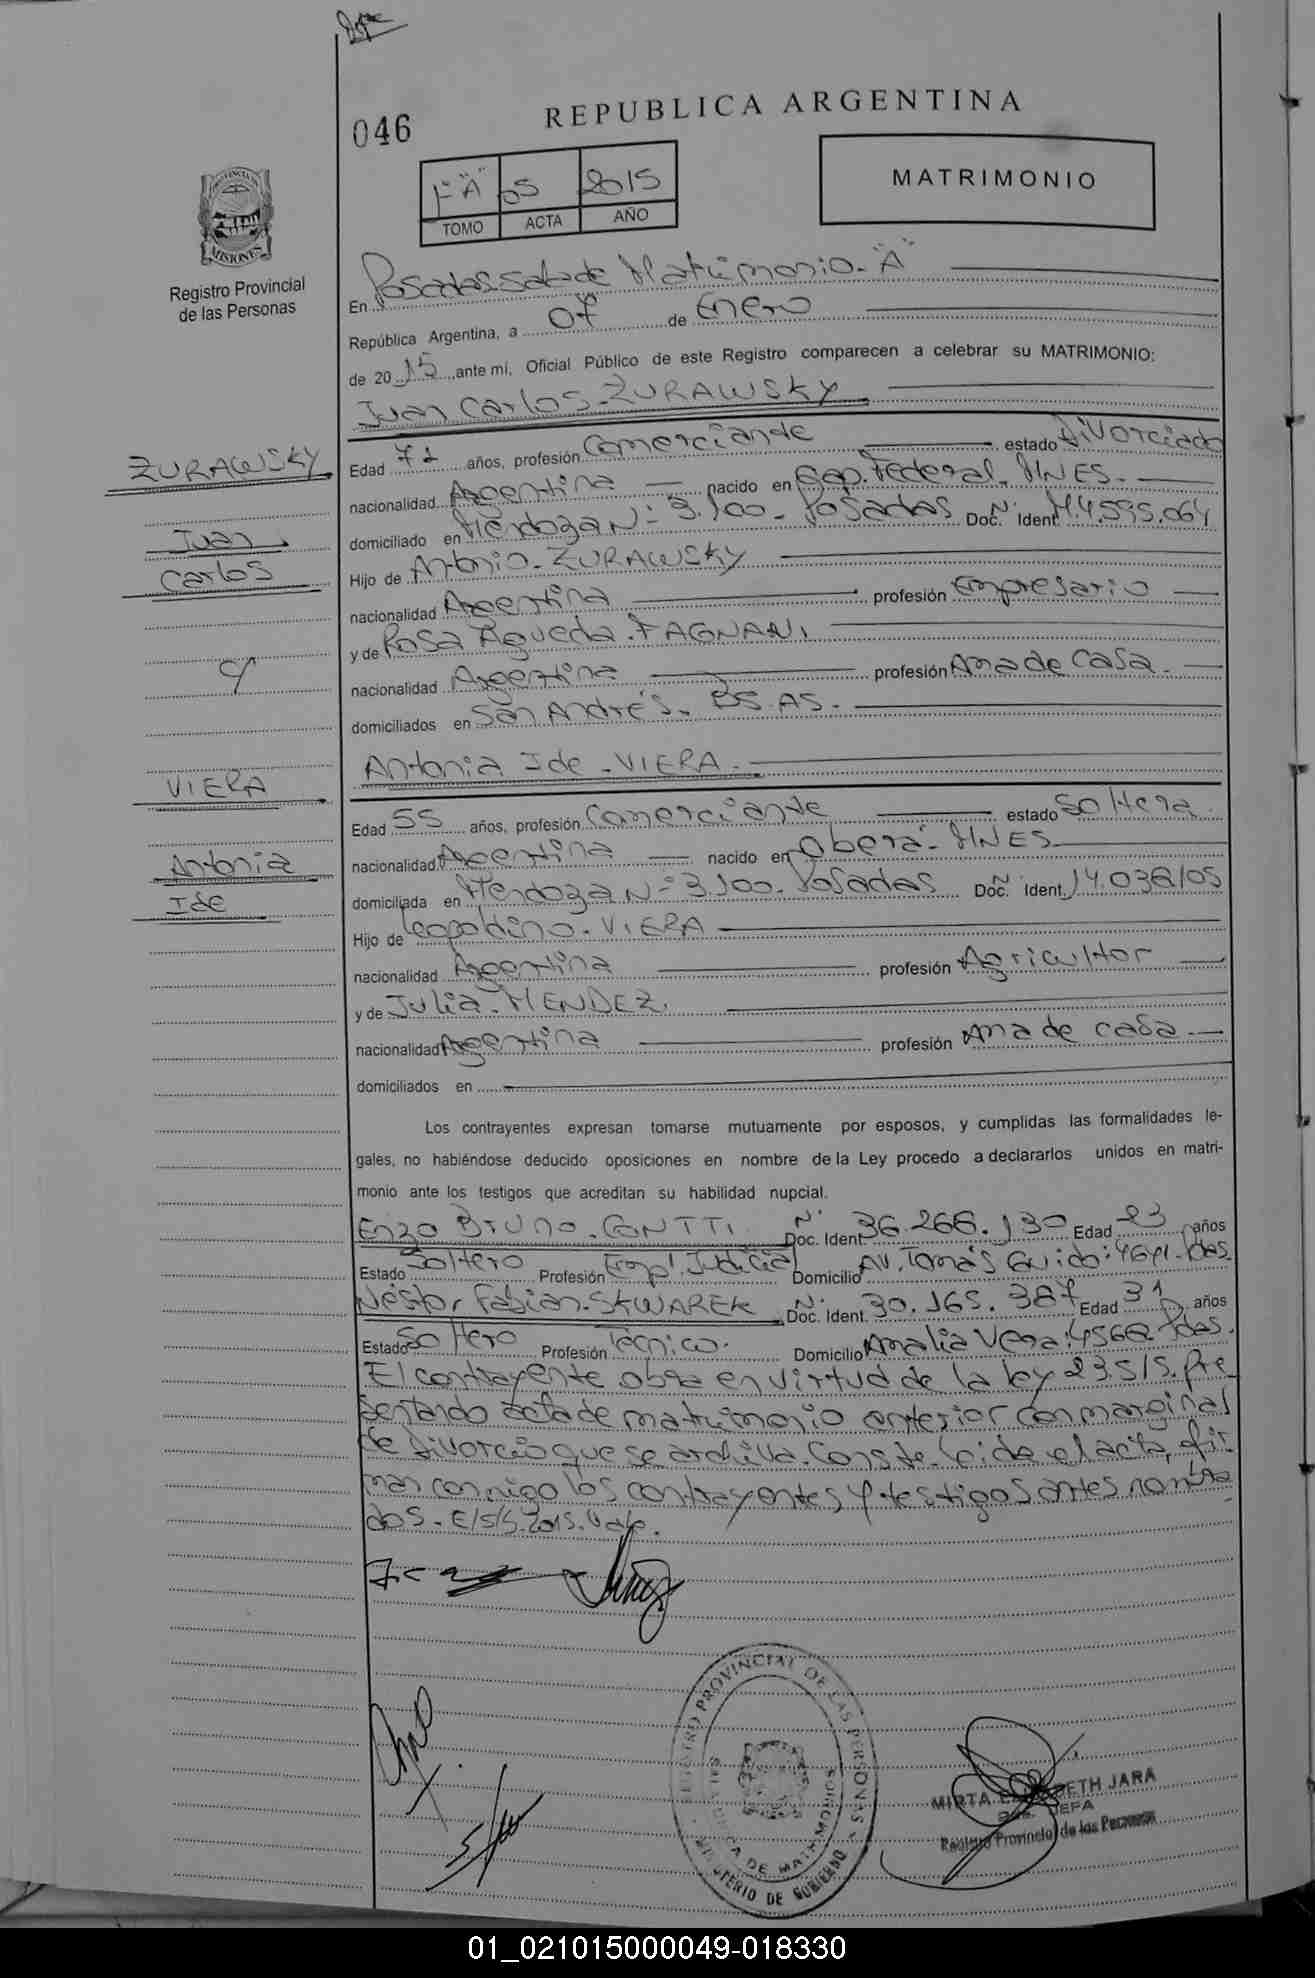 046
REPUBLICA ARGENTINA
1-"A" 05 2015
TOMO ACTA AÑO
MATRIMONIO
PROVINCIA DE
MISIONES
Registro Provincial
de las Personas
En Posadas Sala de Matrimonio. "A"
República Argentina, a 07 de Enero
de 2015 ante mi, Oficial Público de este Registro comparecen a celebrar su MATRIMONIO:
Juan Carlos ZURAWSKY
ZURAWSKY
Juan
Carlos
y
VIERA
Antonia
Ide
Edad 71 años, profesión Comerciante estado Divorciado
nacionalidad Argentina nacido en Cap. Federal. MNES.
domiciliado en Mendoza Nº 3.100. Posadas Doc. Ident. Nº M4.595.064
Hijo de Antonio. ZURAWSKY
nacionalidad Argentina profesión Empresario
y de Rosa Agueda. FAGNANI
nacionalidad Argentina profesión Ama de Casa.
domiciliados en San Andrés. BS.AS.
Antonia Ide. VIERA.
Edad 55 años, profesión Comerciante estado Soltera
nacionalidad Argentina nacido en Oberá. MNES
domiciliada en Mendoza Nº 3.100. Posadas Doc. Nº Ident. 14.036105
Hijo de Leopoldino. VIERA
nacionalidad Argentina profesión Agricultor
y de Julia. MENDEZ.
nacionalidad Argentina profesión Ama de casa.
domiciliados en
Los contrayentes expresan tomarse mutuamente por esposos, y cumplidas las formalidades le-
gales, no habiéndose deducido oposiciones en nombre de la Ley procedo a declararlos unidos en matri-
monio ante los testigos que acreditan su habilidad nupcial.
Enzo Bruno. CONTTI Nº Doc. Ident. 36.266.130 Edad 23 años
Estado Soltero Profesión Empl. Judicial Domicilio AV. Tomás Guido: 4691. Pdas.
Néstor Fabian. SKWAREK Nº Doc. Ident. 30.165.387 Edad 31 años
Estado Soltero Profesión Técnico. Domicilio Amalia Vera: 4566 Pdas.
El contrayente obra en virtud de la ley 23.515. pre
sentando acta de matrimonio anterior con marginal
de divorcio que se archiva. Conste. Leida el acta, fir
man conmigo los contrayentes y testigos antes nombra
dos. E/S/S. 2015. Vale.
REGISTRO PROVINCIAL DE LAS PERSONAS
MINISTERIO DE GOBIERNO
DE MATRIMONIOS
MIRTA ELIZABETH JARA
JEFA
Registro Provincial de las Personas
01_021015000049-018330